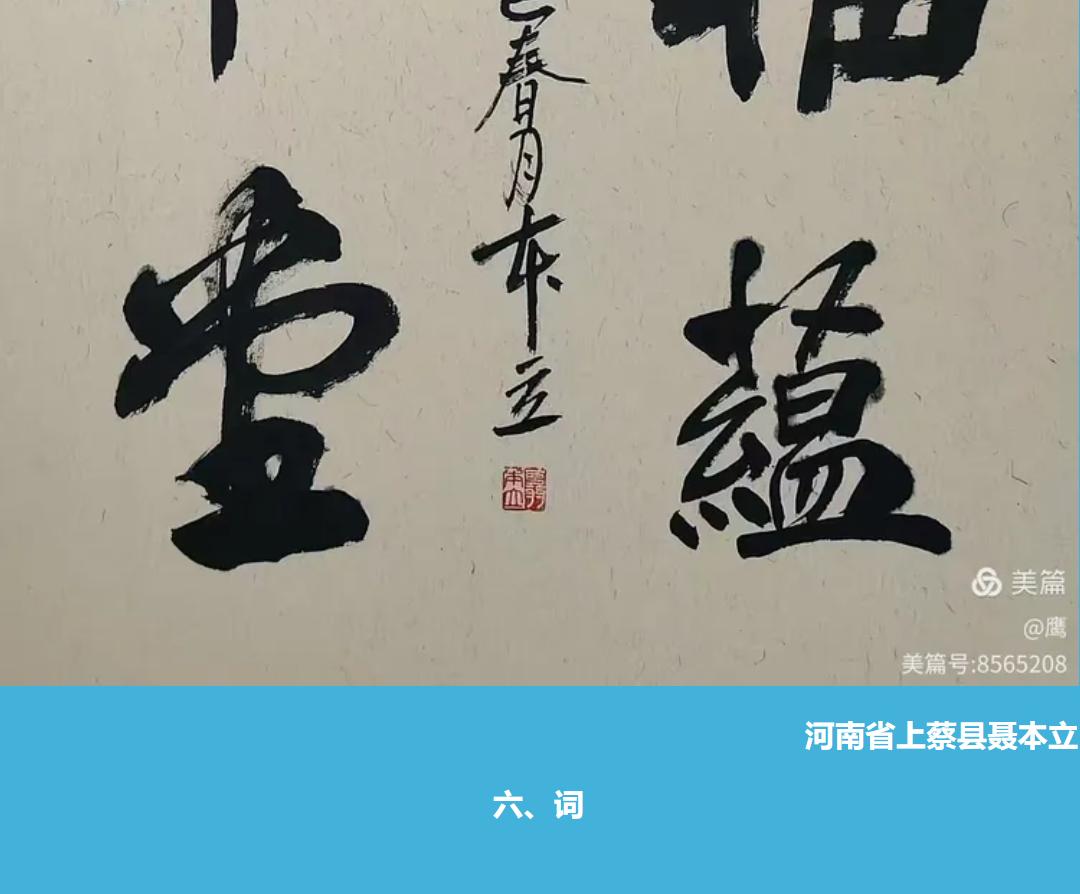 蘊
春月本立
堂
美篇
@鹰
美篇号:8565208
河南省上蔡县聂本立
六、词